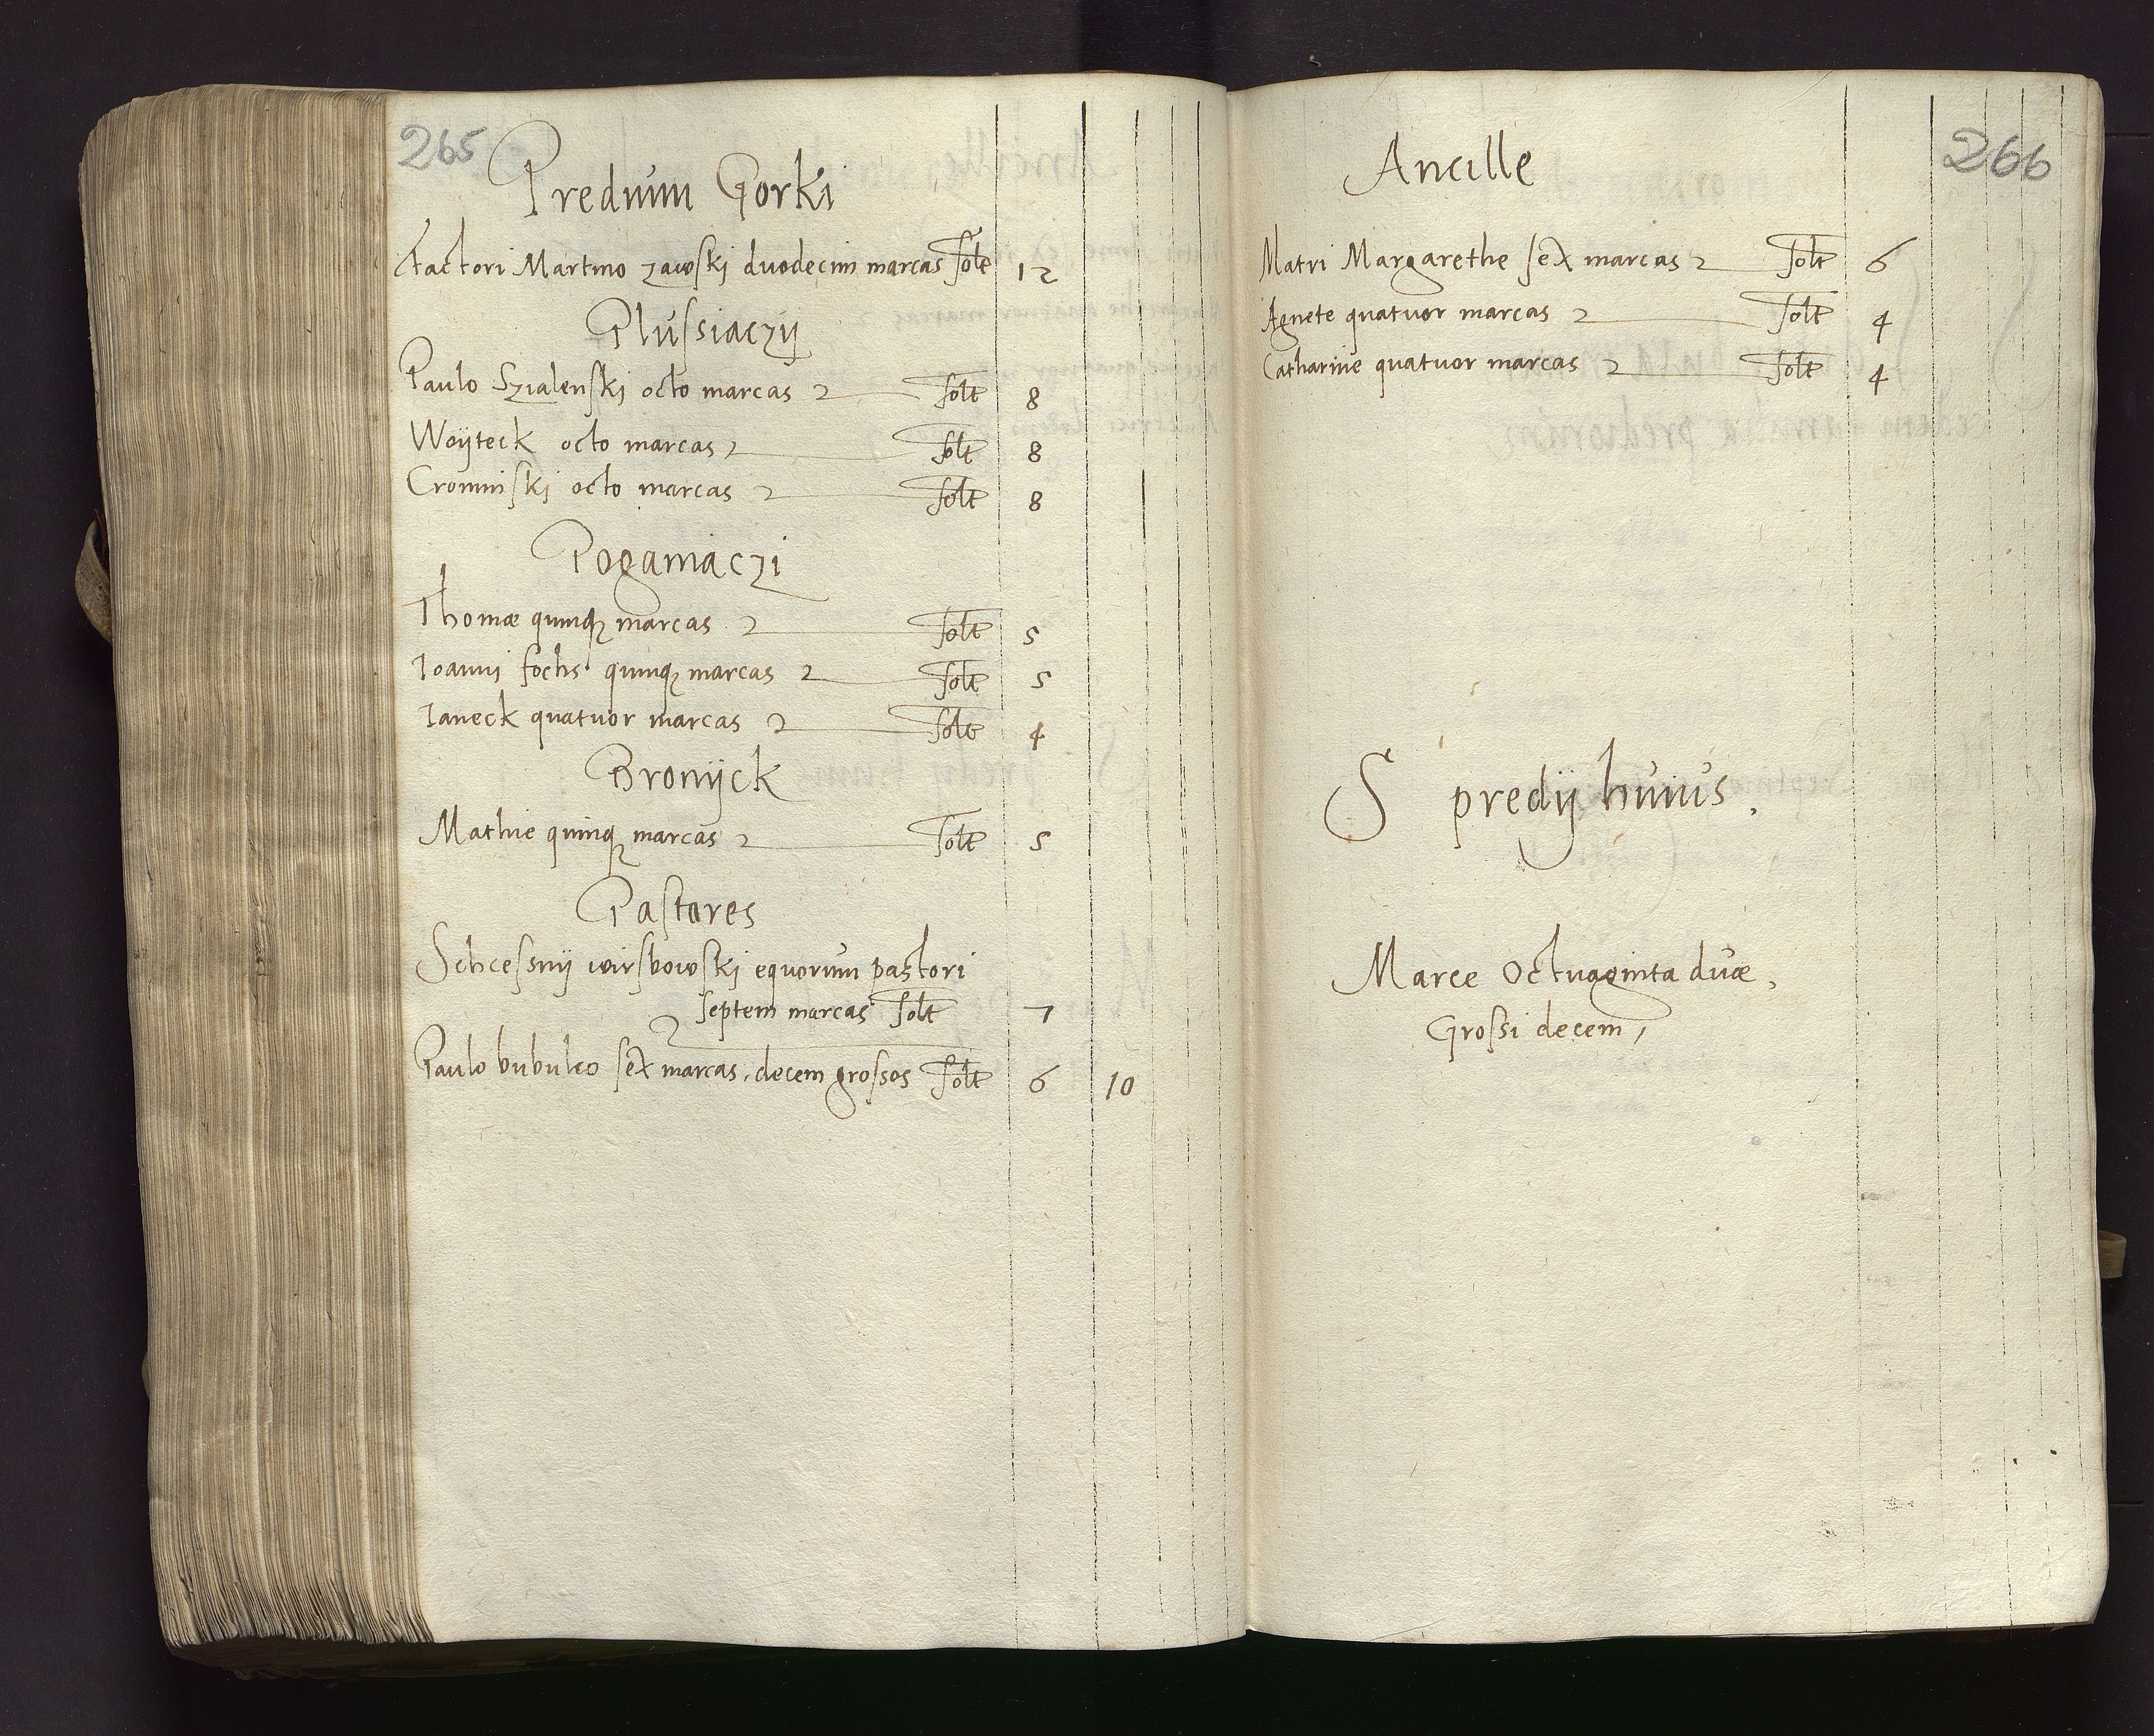 265
Predium Gorki
Factori Martino zawski duodecim marcas solt 12
Plussiaczÿ
Paulo Szialenski octo marcas solt 8
Woÿteck octo marcas solt 8
Crominski octo marcas solt 8
Poganiaczi
Thomæ quinqꝫ marcas solt 5
Ioanni fochs quinqꝫ marcas solt 5
Ianeck quatuor marcas solt 4
Bronÿck
Mathie quinqꝫ marcas solt 5
Pastores
Schcessnÿ wirsbowski equorum pastori
septem marcas solt 7
Paulo bubulco sex marcas, decem grossos solt 6 10
266
Ancille
Matri Margarethe sex marcas solt 6
Agnete quatuor marcas solt 4
Catharine quatuor marcas solt 4
S predÿ huius.
Marce Octuaginta duæ,
Grossi decem,